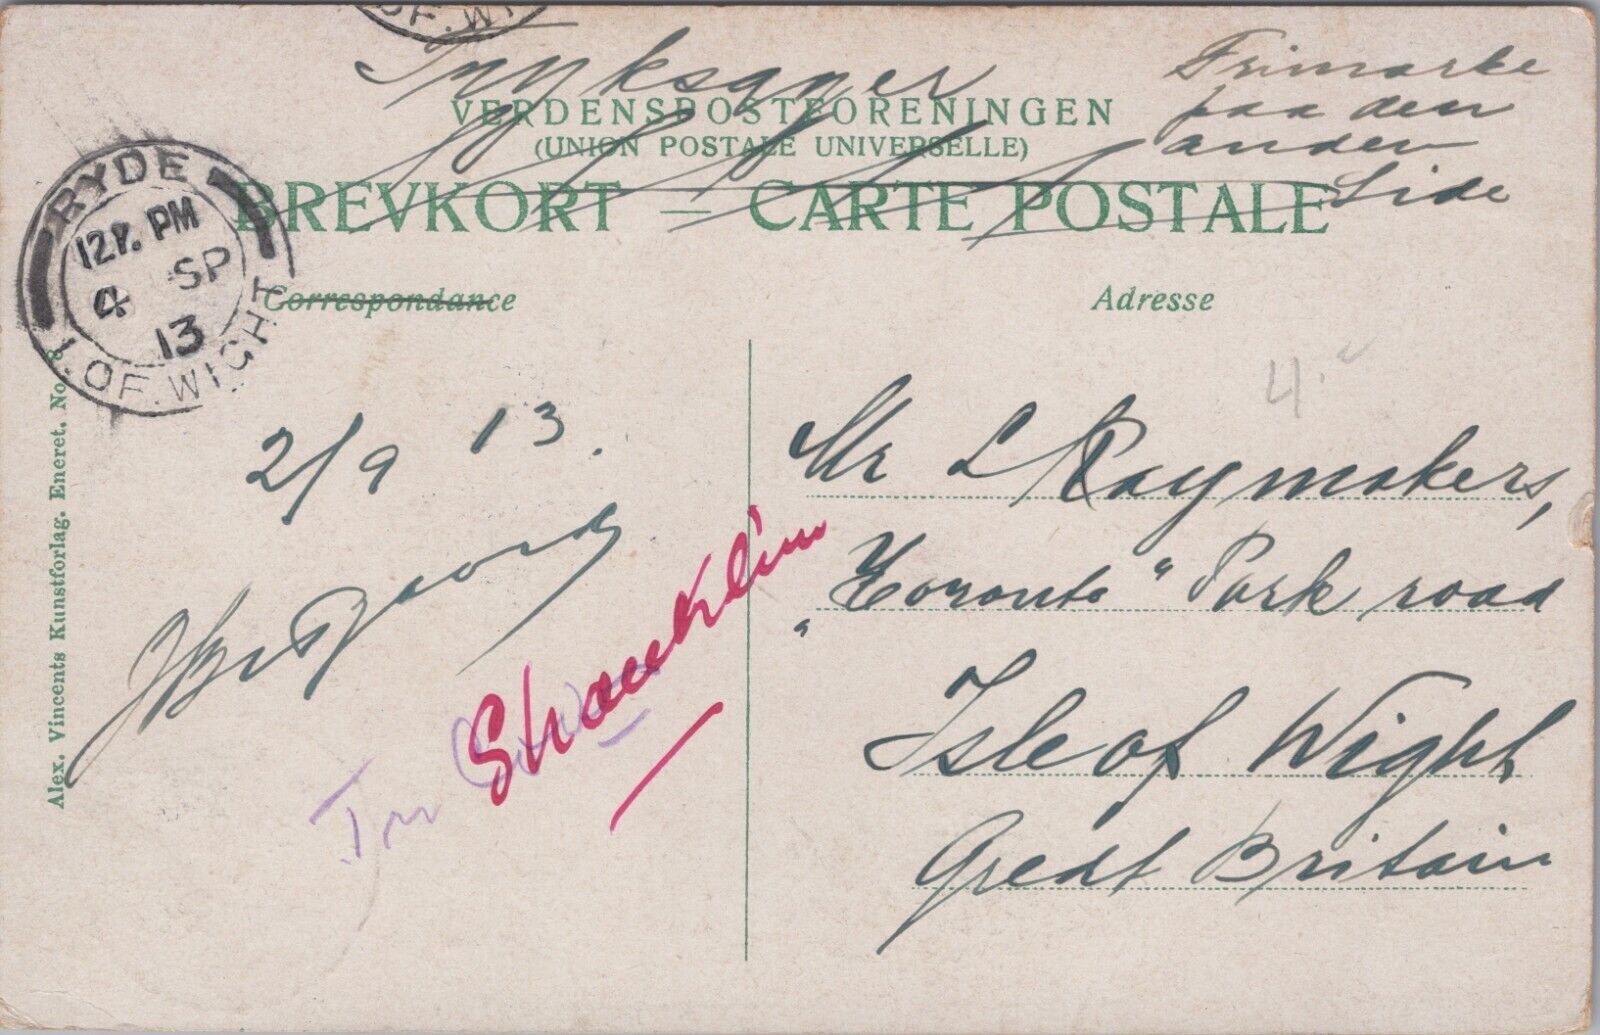 OF. WI
Tryksager
Frimarke
paa den
anden
Side
VERDENSPOSTFORENINGEN
(UNION POSTALE UNIVERSELLE)
BREVKORT — CARTE POSTALE
RYDE
12 PM
4 SP
13
I. OF. WIGHT
Correspondance
Adresse
Alex. Vincents Kunstforlag. Eneret. No. 8
4
2/9 13.
Mr L Raymakers,
"Toronto" Park road
Isle of Wight
Great Britain
Try
Shanklin